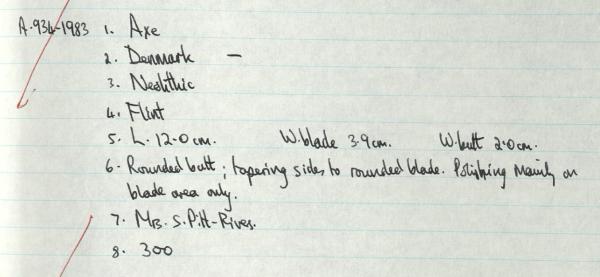 A.934-1983 1. Axe
2. Denmark –
3. Neolithic
4. Flint
5. L. 12.0 cm. W. blade 3.9 cm. W. butt 2.0 cm.
6. Rounded butt; tapering sides to rounded blade. Polishing mainly on
blade area only.
7. Mrs. S. Pitt-Rivers.
8. 300